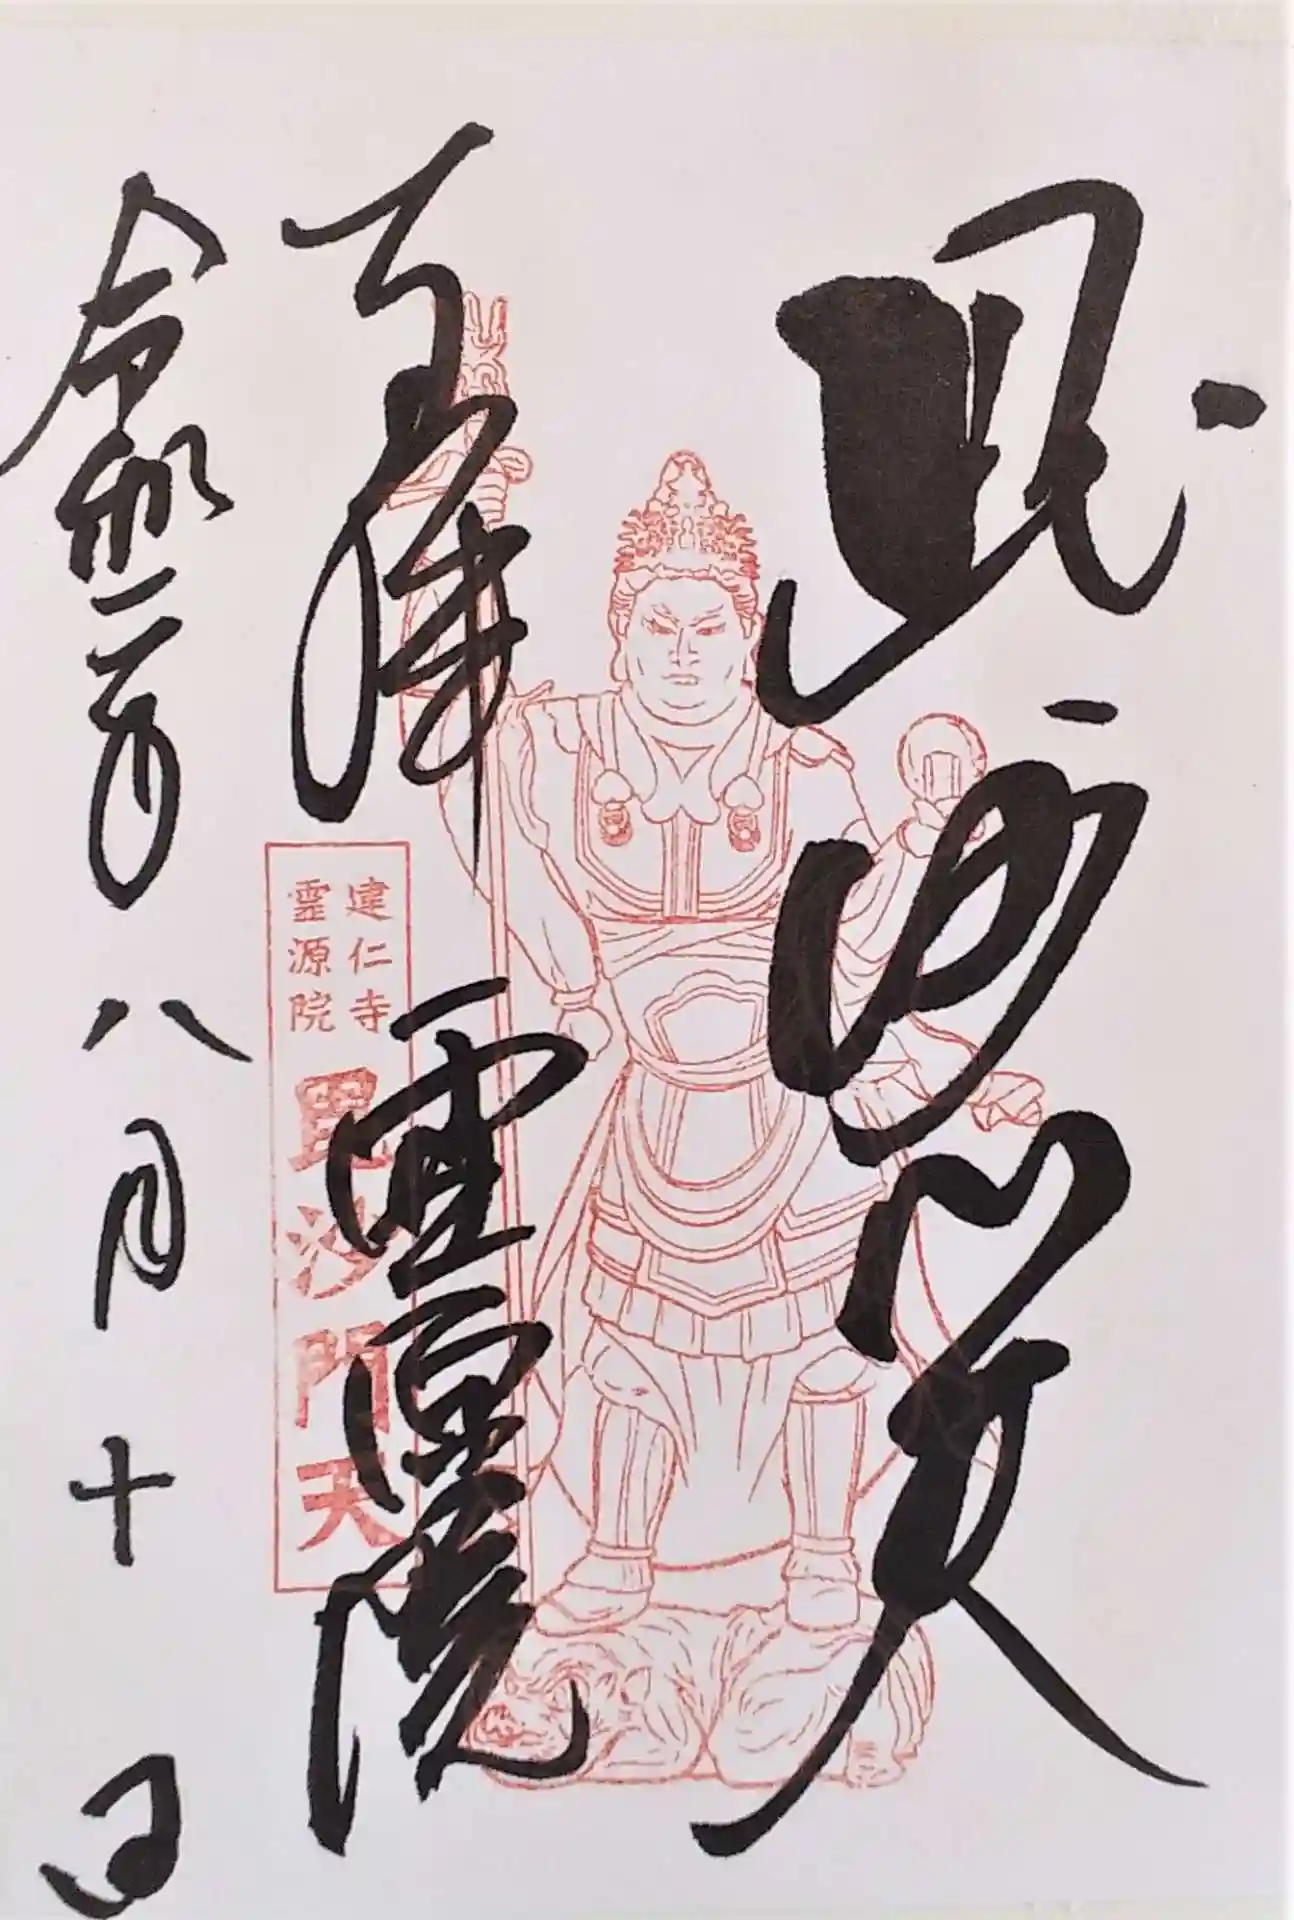 毘沙門天
霊源院
令和二年八月十日
建仁寺
霊源院
毘沙門天